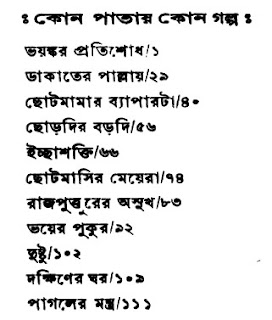 : কোন পাতায় কোন গল্প :
ভয়ঙ্কর প্রতিশোধ/১
ডাকাতের পাল্লায়/২৯
ছোটমামার ব্যাপারটা/৪০
ছোড়দির বড়দি/৫৬
ইচ্ছাশক্তি/৬৬
ছোটমাসির মেয়েরা/৭৪
রাজপুত্তুরের অসুখ/৮৩
ভয়ের পুকুর/৯২
ভুতু/১০২
দক্ষিণের ঘর/১০৯
পাগলের মন্ত্র/১১১